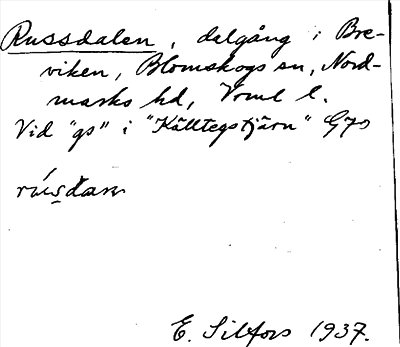 Russdalen, dalgång i Bre-
viken, Blomskogs sn, Nord-
marks hd, Vrml l.
Vid "gs" i "Källtegstjärn" G70
E. Silfors 1937.